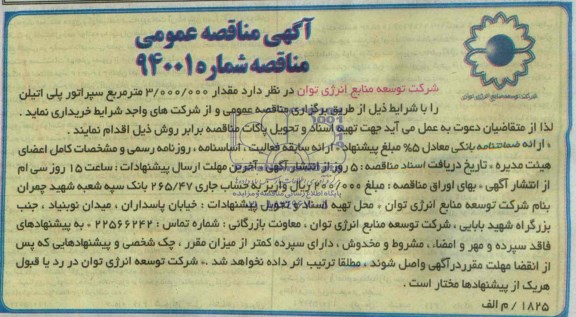 آگهی مناقصه عمومی
مناقصه شماره ۹۴۰۰۱
شرکت توسعه منابع انرژی توان
شرکت توسعه منابع انرژی توان در نظر دارد مقدار ۳/۰۰۰/۰۰۰ مترمربع سپراتور پلی اتیلن
را با شرایط ذیل از طریق برگزاری مناقصه عمومی و از شرکت های واجد شرایط خریداری نماید .
لذا از متقاضیان دعوت به عمل می آید جهت تهیه اسناد و تحویل پاکات مناقصه برابر روش ذیل اقدام نمایند .
* ارائه ضمانتنامه بانکی معادل ۵% مبلغ پیشنهاد * ارائه سابقه فعالیت ، اساسنامه ، روزنامه رسمی و مشخصات کامل اعضای
هیئت مدیره * تاریخ دریافت اسناد مناقصه : ۵ روز از انتشار آگهی * آخرین مهلت ارسال پیشنهادات : ساعت ۱۵ روز سی ام
از انتشار آگهی * بهای اوراق مناقصه : مبلغ ۲۰۰/۰۰۰ ریال واریز به حساب جاری ۲۶۵/۴۷ بانک سپه شعبه شهید چمران
بنام شرکت توسعه منابع انرژی توان * محل تهیه اسناد و تحویل پیشنهادات : خیابان پاسداران ، میدان نوبنیاد ، جنب
بزرگراه شهید بابایی ، شرکت توسعه منابع انرژی توان ، معاونت بازرگانی : شماره تماس : ۲۲۵۶۶۲۴۲ * به پیشنهادهای
فاقد سپرده و مهر و امضا، مشروط و مخدوش ، دارای سپرده کمتر از میزان مقرر ، چک شخصی و پیشنهادهایی که پس
از انقضا مهلت مقرر درآگهی واصل شوند ، مطلقا ترتیب اثر داده نخواهد شد .* شرکت توسعه منابع انرژی توان در رد یا قبول
هریک از پیشنهادها مختار است .
۱۸۲۵ / م الف